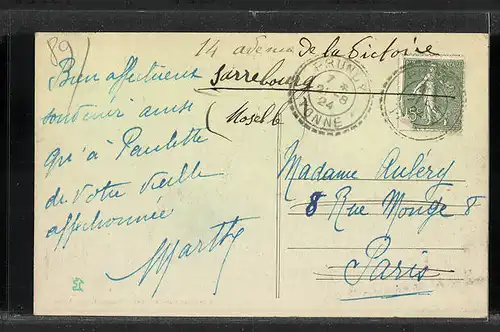 89
14 avenue de la Victoire
Sarrebourg
(Moselle
Bien affectueux
souvenir ainsi
qu'à Paulette
de votre vieille
affectionnée
Marthe
BRUNOY
7 *
8
24
YONNE
15c
Madame Aubéry
8 Rue Monge 8
Paris